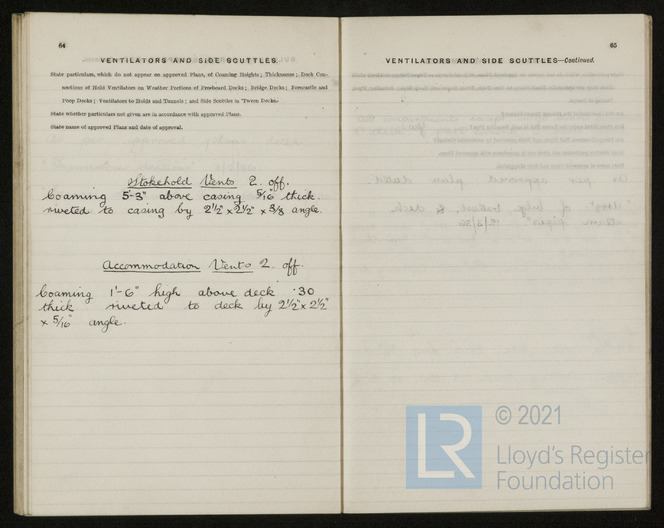 64
VENTILATORS AND SIDE SCUTTLES.
State particulars, which do not appear on approved Plans, of Coaming Heights; Thicknesses; Deck Con-
nections of Hold Ventilators on Weather Portions of Freeboard Decks; Bridge Decks; Forecastle and
Poop Decks; Ventilators to Holds and Tunnels; and Side Scuttles in 'Tween Decks.
State whether particulars not given are in accordance with approved Plans.
State name of approved Plans and date of approval.
Stokehold Vents 2. off.
Coaming 5'-3" above casing 5/16" thick
riveted to casing by 2½" x 2½" x 3/8 angle.
Accommodation Vents 2. off.
Coaming 1'-6" high above deck .30
thick riveted to deck by 2½" x 2½"
x 5/16" angle.
65
VENTILATORS AND SIDE SCUTTLES—Continued.
LR
© 2021
Lloyd's Register
Foundation